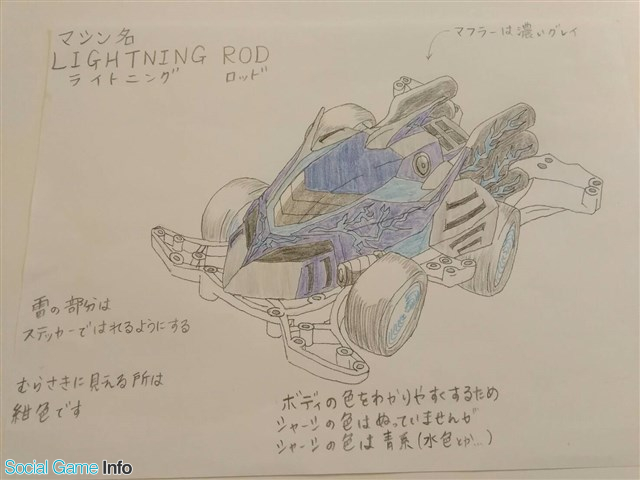 マシン名
LIGHTNING ROD
ライトニング ロッド
マフラーは濃いグレイ
雷の部分は
ステッカーではれるようにする
むらさきに見える所は
紺色です
ボディの色をわかりやすくするため
シャーシの色はぬっていませんが
シャーシの色は青系(水色とか…)
Social Game Info